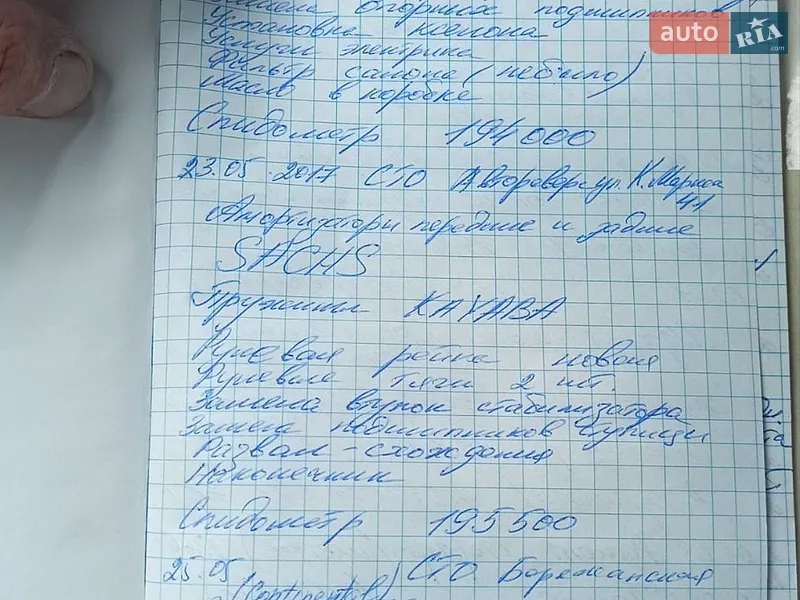 опорных подшипников
Установка
Услуги электрика
Фильтр салона (небыло)
Масло в коробке
Спидометр 194000
23.05.2017 СТО ул. К. Маркса
41
Амортизаторы передние и задние
SACHS
Пружины KAYABA
Рулевая рейка новая
Рулевые тяги 2 шт.
Замена втулок стабилизатора
Замена подшипников ступицы
Развал-схождения
Наконечник
Спидометр 195500
25.05 СТО
(Continental)
auto RIA .com